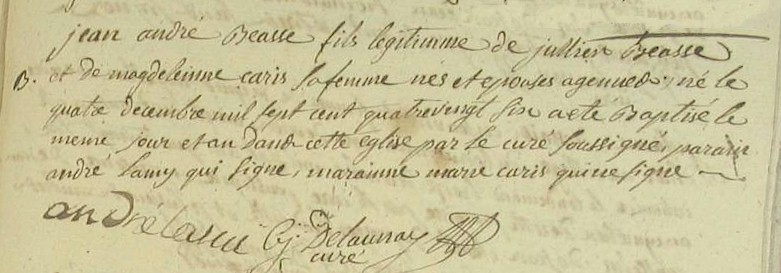 jean andré Beasse fils legitimme de jullien Beasse
B. et de magdeleinne caris sa femme nés et epouses a genued né le
quatre decembre mil sept cent quatrevingt six a eté Baptisé le
meme jour et an dans cette eglise par le curé soussigné, parain
andré lamy qui signe, marainne marie caris qui ne signe
andré lami Cj Delaunay
curé